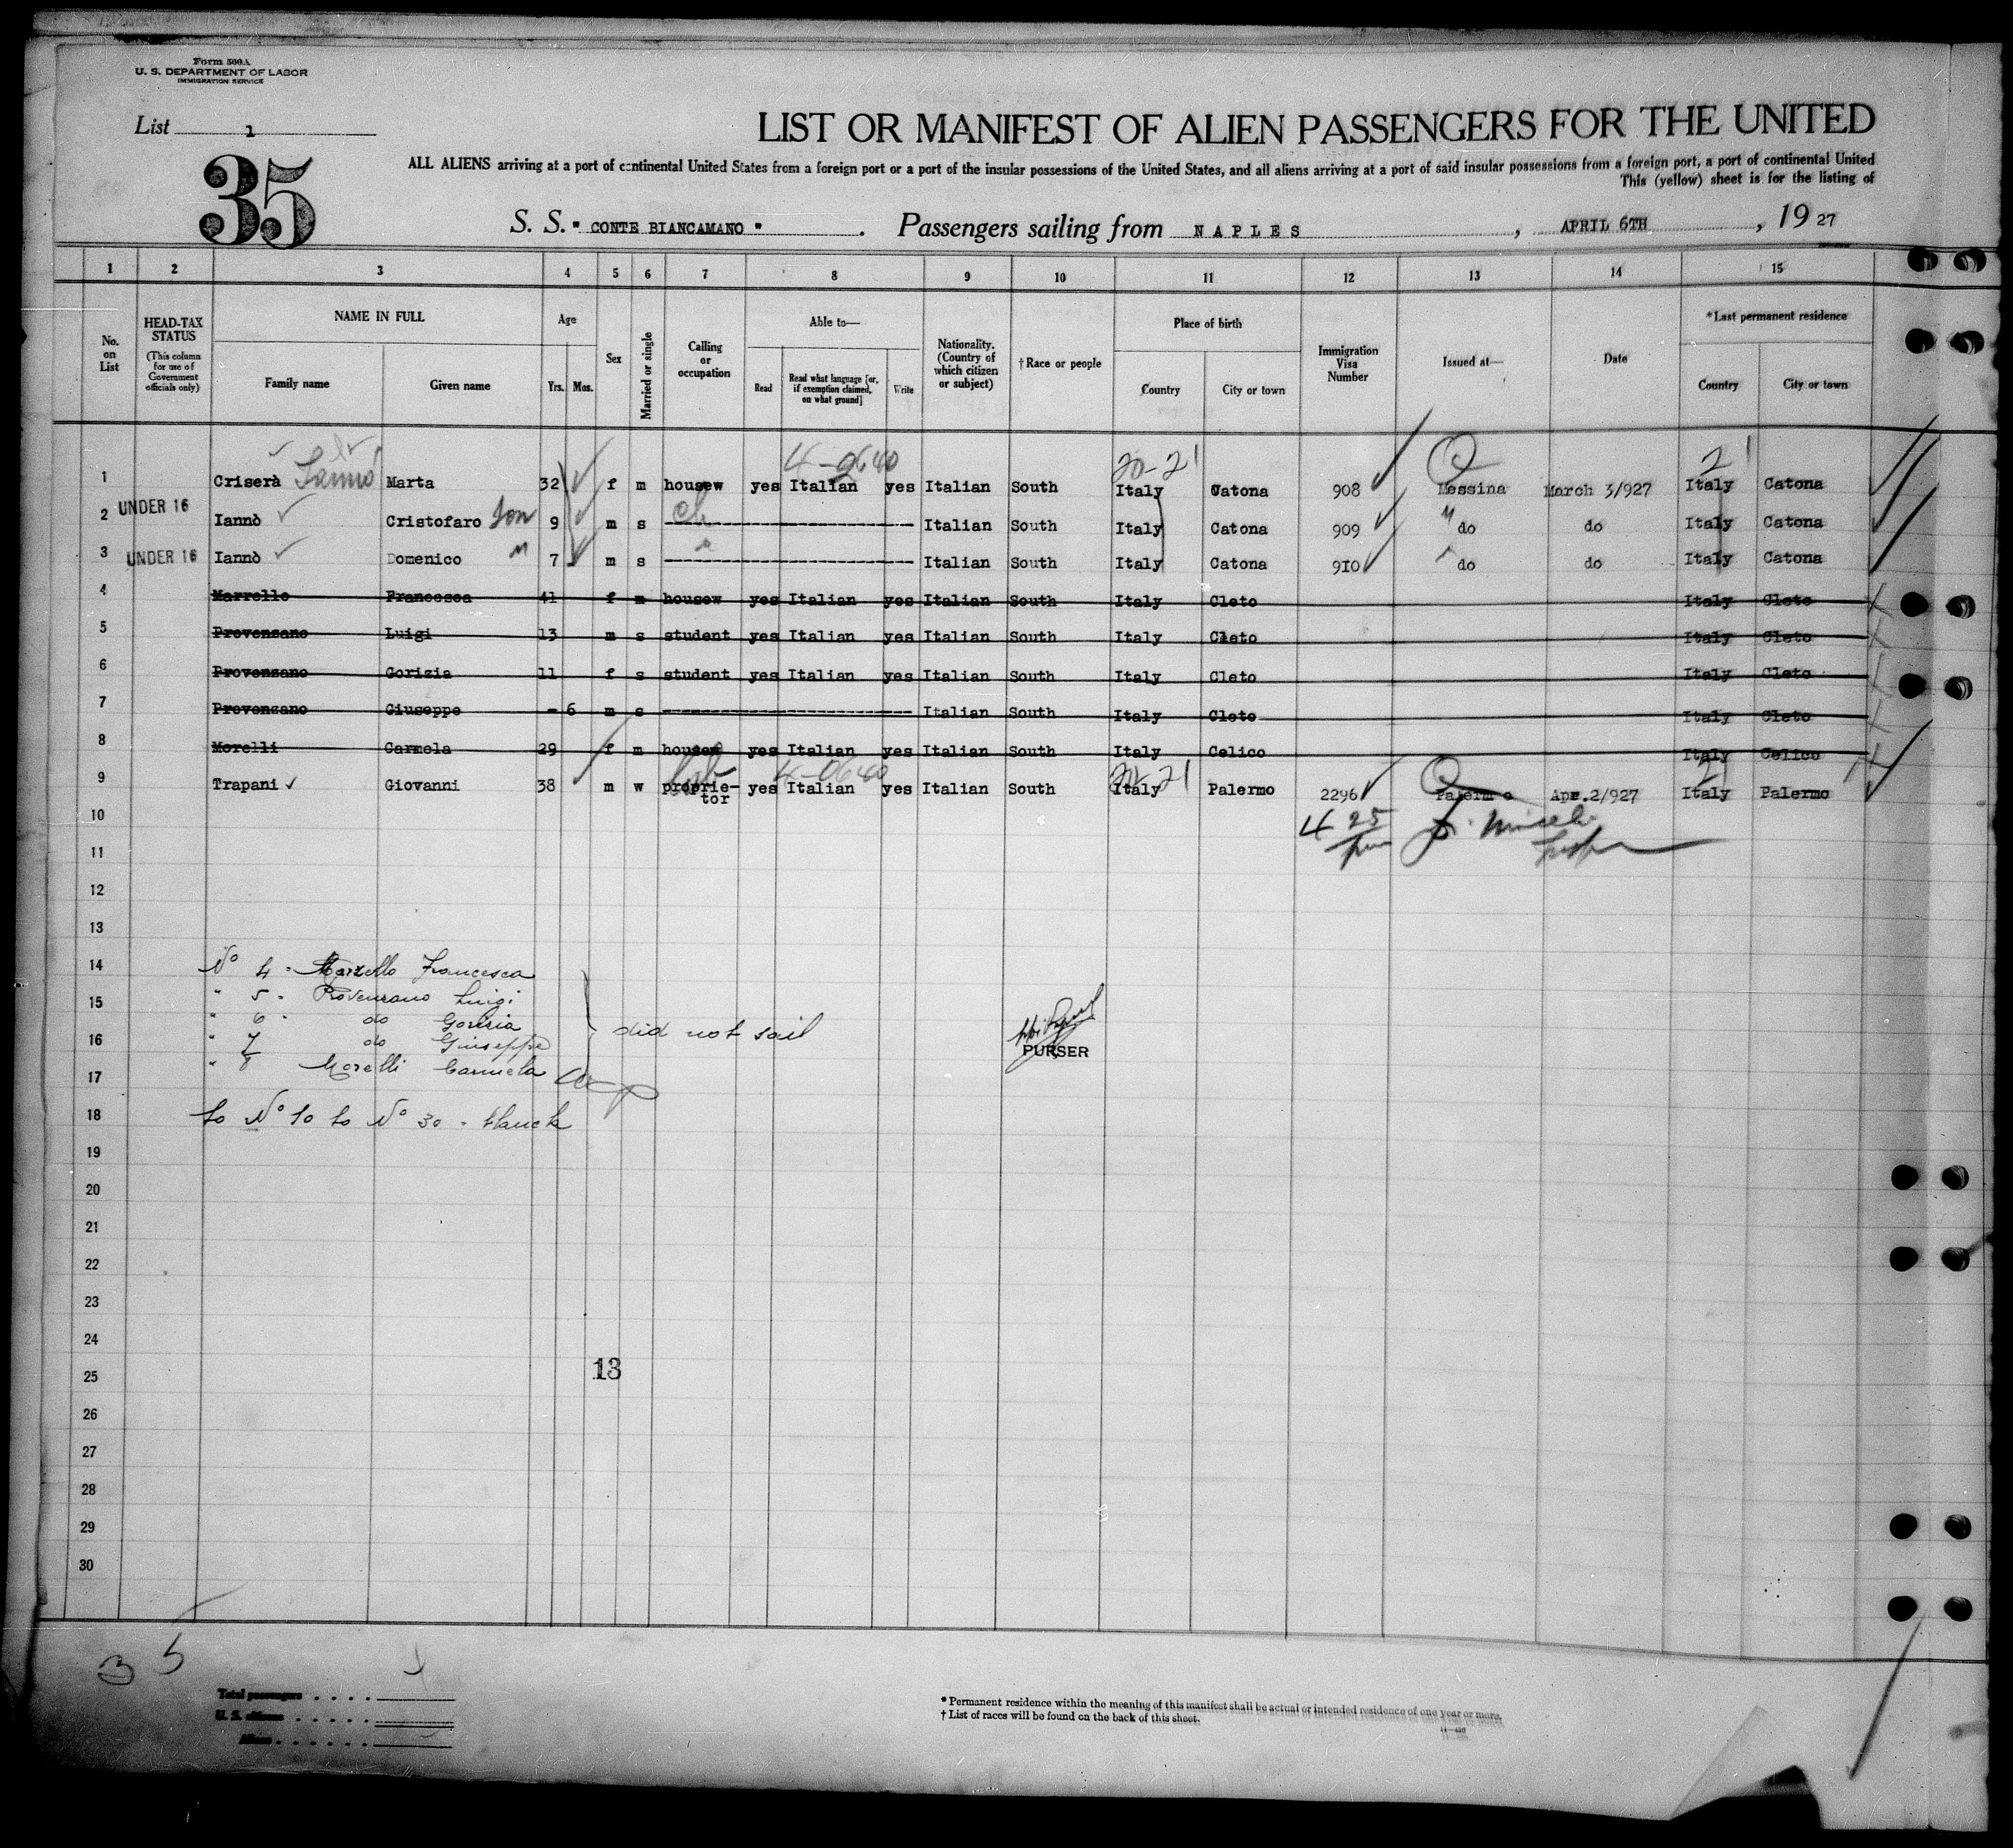 Form 500A
U. S. DEPARTMENT OF LABOR
IMMIGRATION SERVICE
List 1
LIST OR MANIFEST OF ALIEN PASSENGERS FOR THE UNITED
35
ALL ALIENS arriving at a port of continental United States from a foreign port or a port of the insular possessions of the United States, and all aliens arriving at a port of said insular possessions from a foreign port, a port of continental United
This (yellow) sheet is for the listing of
S. S. " CONTE BIANCAMANO " . Passengers sailing from NAPLES , APRIL 6TH , 19 27
1 2 3 4 5 6 7 8 9 10 11 12 13 14 15
No. on List
HEAD-TAX STATUS (This column for use of Government officials only)
NAME IN FULL
Family name Given name
Age
Yrs. Mos.
Sex
Married or single
Calling or occupation
Able to—
Read Read what language [or, if exemption claimed, on what ground] Write
Nationality. (Country of which citizen or subject)
† Race or people
Place of birth
Country City or town
Immigration Visa Number
Issued at—
Date
* Last permanent residence
Country City or town
4-0640 20-21 2 1
1 Criserà Iannó Marta 32 f m housew yes Italian yes Italian South Italy Catona 908 Messina March 3/927 Italy Catona
2 UNDER 16 Iannò Cristofaro Son 9 m s Ch Italian South Italy Catona 909 do do Italy Catona
3 UNDER 16 Iannò Domenico " 7 m s " Italian South Italy Catona 910 do do Italy Catona
4 Marrello Francesca 41 f m housew yes Italian yes Italian South Italy Cleto Italy Cleto
5 Provenzano Luigi 13 m s student yes Italian yes Italian South Italy Cleto Italy Cleto
6 Provenzano Gorizia 11 f s student yes Italian yes Italian South Italy Cleto Italy Cleto
7 Provenzano Giuseppe - 6 m s Italian South Italy Cleto Italy Cleto
8 Morelli Carmela 29 f m housew yes Italian yes Italian South Italy Celico Italy Celico
4-0640 20-21 21
9 Trapani Giovanni 38 m w proprie-tor yes Italian yes Italian South Italy Palermo 2296 Palermo Apr. 2/927 Italy Palermo
10 4 25
11
12
13
14 No 4 - Marrello Francesca
15 " 5 - Provenzano Luigi
" 6 - do Gorizia
16 " 7 do Giuseppe did not sail PURSER
17 " 8 Morelli Carmela
18 to No 10 to No 30 -
19
20
21
22
23
24
25 13
26
27
28
29
30
3 5
Total passengers
U. S. citizens
Aliens
* Permanent residence within the meaning of this manifest shall be actual or intended residence of one year or more.
† List of races will be found on the back of this sheet.